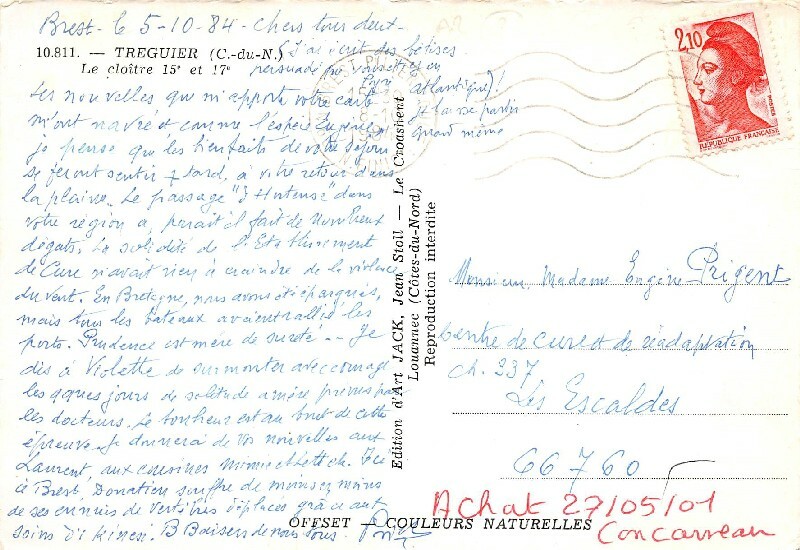 Brest le 5-10-84 - Chers tous deux -
10.811. — TREGUIER (C.-du-N.)
Le cloître 15e et 17e
(J'ai écrit des bêtises
persuadé
atlantique)!
laisse partir
quand même
Les nouvelles que m'apporte votre carte
m'ont navré et comme l'espère Eugène
je pense que les bienfaits de votre séjour
se feront sentir + tard, à votre retour dans
la plaine. Le passage "d'Hortense" dans
votre région a, paraît il fait de nombreux
dégats. La solidité de l'Etablissement
de Cure n'avait rien à craindre de la violence
du vent. En Bretagne, nous avons été épargnés,
mais tous les bateaux avaient rallié les
ports. Prudence est mère de sureté -- Je
dis à Violette de surmonter avec courage
les qques jours de solitude amère prévus par
les docteurs. Le bonheur est au bout de cette
épreuve. Je donnerai de vos nouvelles aux
Laurent, aux cousines Mimi et Ici
à Brest, Donation souffre de moins en moins
de ses ennuis de vertèbres déplacées grâce aux
soins d'1 kinési. B Baisers de nous tous.
Edition d'Art JACK, Jean Stoll — Le Croashent
Louannec (Côtes-du-Nord)
Reproduction interdite
2,10
POSTES
REPUBLIQUE FRANÇAISE
Monsieur, Madame Eugène Prigent
Centre de cure et de réadaptation
Ch. 237
Les Escaldes
66760
Achat 27/05/01
Concarneau
OFFSET — COULEURS NATURELLES